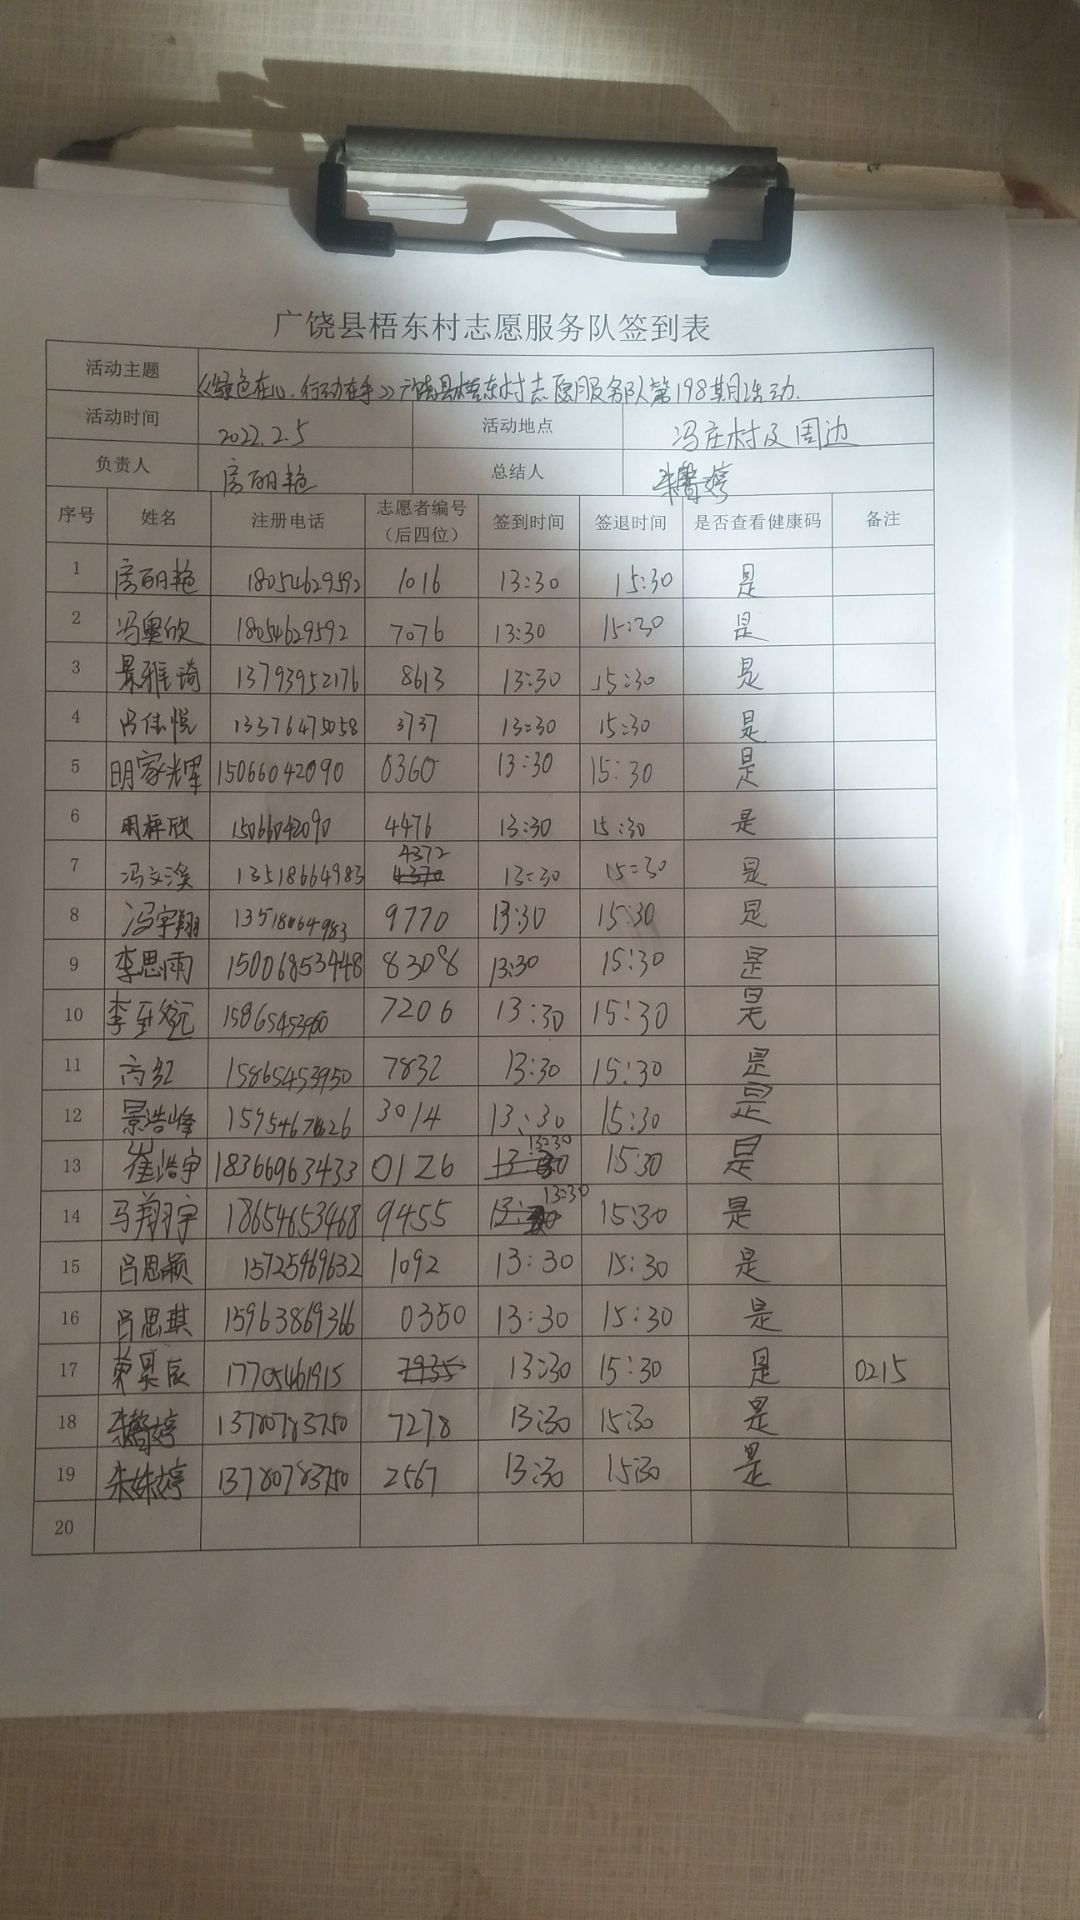 广饶县梧东村志愿服务队签到表
活动主题 《绿色在心.行动在手》广饶县梧东村志愿服务队第198期活动.
活动时间 2022.2.5 活动地点 冯庄村及周边
负责人 房丽艳 总结人 朱馨婷
序号 姓名 注册电话 志愿者编号（后四位） 签到时间 签退时间 是否查看健康码 备注
1 房丽艳 18054629592 1016 13:30 15:30 是
2 冯奥欣 18054629592 7076 13:30 15:30 是
3 景雅琦 13793952176 8613 13:30 15:30 是
4 吕佳悦 13376475058 3737 13:30 15:30 是
5 明家辉 15066042090 0360 13:30 15:30 是
6 明梓欣 15066042090 4476 13:30 15:30 是
7 冯文溪 13518664983 4372 13:30 15:30 是
8 冯宇翔 13518664983 9770 13:30 15:30 是
9 李思雨 15006853448 8308 13:30 15:30 是
10 李 7206 13:30 15:30 是
11 高红 15865453950 7832 13:30 15:30 是
12 景浩峰 3014 13:30 15:30 是
13 崔浩宇 18366963433 0126 13:30 15:30 是
14 马翔宇 18654653468 9455 13:30 15:30 是
15 吕思颖 15725969632 1092 13:30 15:30 是
16 吕思琪 15963869366 0350 13:30 15:30 是
17 昊辰 17705461915 7935 13:30 15:30 是 0215
18 朱馨婷 13780783750 7278 13:30 15:30 是
19 朱姝婷 13780783750 2567 13:30 15:30 是
20